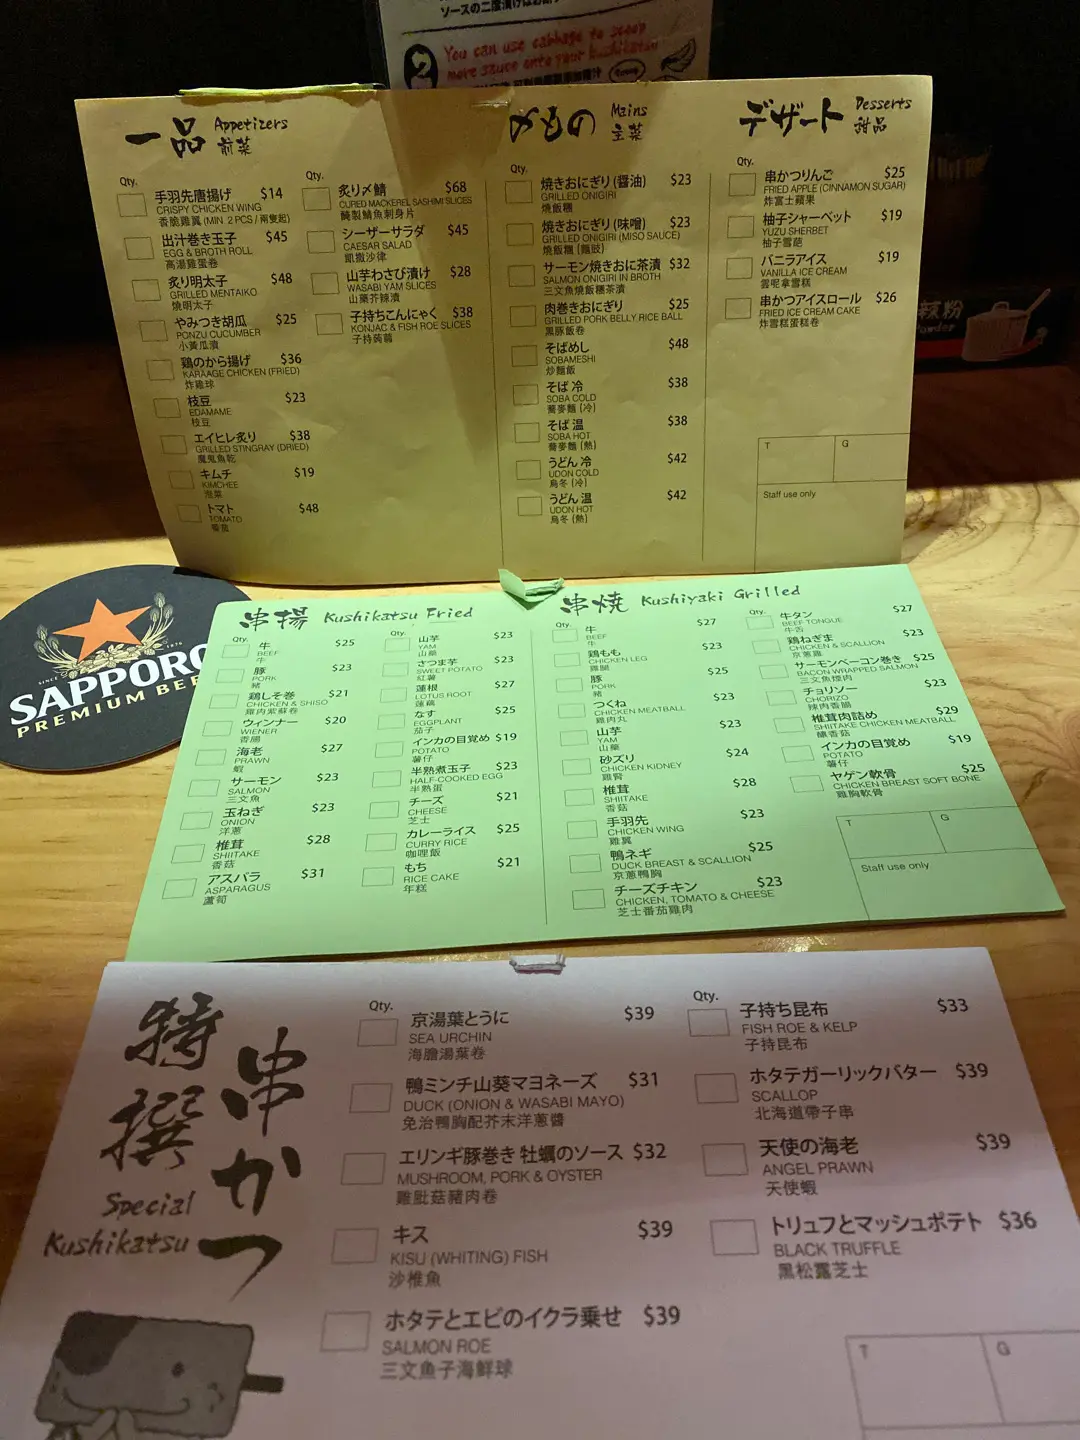 ソースの二度漬けはお断り
2
You can use cabbage to scoop
more sauce onto your kushikatsu
一品 Appetizers
前菜
Qty.
手羽先唐揚げ $14
CRISPY CHICKEN WING
香脆雞翼 (MIN. 2 PCS / 兩隻起)
出汁巻き玉子 $45
EGG & BROTH ROLL
高湯雞蛋卷
炙り明太子 $48
GRILLED MENTAIKO
燒明太子
やみつき胡瓜 $25
PONZU CUCUMBER
小黃瓜漬
鶏のから揚げ $36
KARAAGE CHICKEN (FRIED)
炸雞球
枝豆 $23
EDAMAME
枝豆
エイヒレ炙り $38
GRILLED STINGRAY (DRIED)
魔鬼魚乾
キムチ $19
KIMCHEE
泡菜
トマト $48
TOMATO
番茄
Qty.
炙り〆鯖 $68
CURED MACKEREL SASHIMI SLICES
醃製鯖魚刺身片
シーザーサラダ $45
CAESAR SALAD
凱撒沙律
山芋わさび漬け $28
WASABI YAM SLICES
山藥芥辣漬
子持ちこんにゃく $38
KONJAC & FISH ROE SLICES
子持蒟蒻
〆もの Mains
主菜
Qty.
焼きおにぎり (醤油) $23
GRILLED ONIGIRI
燒飯糰
焼きおにぎり (味噌) $23
GRILLED ONIGIRI (MISO SAUCE)
燒飯糰 (麵豉)
サーモン焼きおに茶漬 $32
SALMON ONIGIRI IN BROTH
三文魚燒飯糰茶漬
肉巻きおにぎり $25
GRILLED PORK BELLY RICE BALL
黑豚飯卷
そばめし $48
SOBAMESHI
炒麵飯
そば 冷 $38
SOBA COLD
蕎麥麵 (冷)
そば 温 $38
SOBA HOT
蕎麥麵 (熱)
うどん 冷 $42
UDON COLD
烏冬 (冷)
うどん 温 $42
UDON HOT
烏冬 (熱)
デザート Desserts
甜品
Qty.
串かつりんご $25
FRIED APPLE (CINNAMON SUGAR)
炸富士蘋果
柚子シャーベット $19
YUZU SHERBET
柚子雪葩
バニラアイス $19
VANILLA ICE CREAM
雲呢拿雪糕
串かつアイスロール $26
FRIED ICE CREAM CAKE
炸雪糕蛋糕卷
T G
Staff use only
辣粉
SINCE 1876
SAPPORO
PREMIUM BEER
串揚 Kushikatsu Fried
Qty.
牛 $25
BEEF
牛
豚 $23
PORK
豬
鶏しそ巻 $21
CHICKEN & SHISO
雞肉紫蘇卷
ウィンナー $20
WIENER
香腸
海老 $27
PRAWN
蝦
サーモン $23
SALMON
三文魚
玉ねぎ $23
ONION
洋蔥
椎茸 $28
SHIITAKE
香菇
アスパラ $31
ASPARAGUS
蘆筍
Qty.
山芋 $23
YAM
山藥
さつま芋 $23
SWEET POTATO
紅薯
蓮根 $27
LOTUS ROOT
蓮藕
なす $25
EGGPLANT
茄子
インカの目覚め $19
POTATO
薯仔
半熟煮玉子 $23
HALF-COOKED EGG
半熟蛋
チーズ $21
CHEESE
芝士
カレーライス $25
CURRY RICE
咖哩飯
もち $21
RICE CAKE
年糕
串焼 Kushiyaki Grilled
Qty.
牛 $27
BEEF
牛
鶏もも $23
CHICKEN LEG
雞腿
豚 $25
PORK
豬
つくね $23
CHICKEN MEATBALL
雞肉丸
山芋 $23
YAM
山藥
砂ズリ $24
CHICKEN KIDNEY
雞腎
椎茸 $28
SHIITAKE
香菇
手羽先 $23
CHICKEN WING
雞翼
鴨ネギ $25
DUCK BREAST & SCALLION
京蔥鴨胸
チーズチキン $23
CHICKEN, TOMATO & CHEESE
芝士番茄雞肉
Qty.
牛タン $27
BEEF TONGUE
牛舌
鶏ねぎま $23
CHICKEN & SCALLION
京蔥雞
サーモンベーコン巻き $25
BACON WRAPPED SALMON
三文魚煙肉
チョリソー $23
CHORIZO
辣肉香腸
椎茸肉詰め $29
SHIITAKE CHICKEN MEATBALL
釀香菇
インカの目覚め $19
POTATO
薯仔
ヤゲン軟骨 $25
CHICKEN BREAST SOFT BONE
雞胸軟骨
T G
Staff use only
特撰
串かつ
Special
Kushikatsu
Qty.
京湯葉とうに $39
SEA URCHIN
海膽湯葉卷
鴨ミンチ山葵マヨネーズ $31
DUCK (ONION & WASABI MAYO)
免治鴨胸配芥末洋蔥醬
エリンギ豚巻き 牡蠣のソース $32
MUSHROOM, PORK & OYSTER
雞髀菇豬肉卷
キス $39
KISU (WHITING) FISH
沙惟魚
ホタテとエビのイクラ乗せ $39
SALMON ROE
三文魚子海鮮球
Qty.
子持ち昆布 $33
FISH ROE & KELP
子持昆布
ホタテガーリックバター $39
SCALLOP
北海道帶子串
天使の海老 $39
ANGEL PRAWN
天使蝦
トリュフとマッシュポテト $36
BLACK TRUFFLE
黑松露芝士
T G